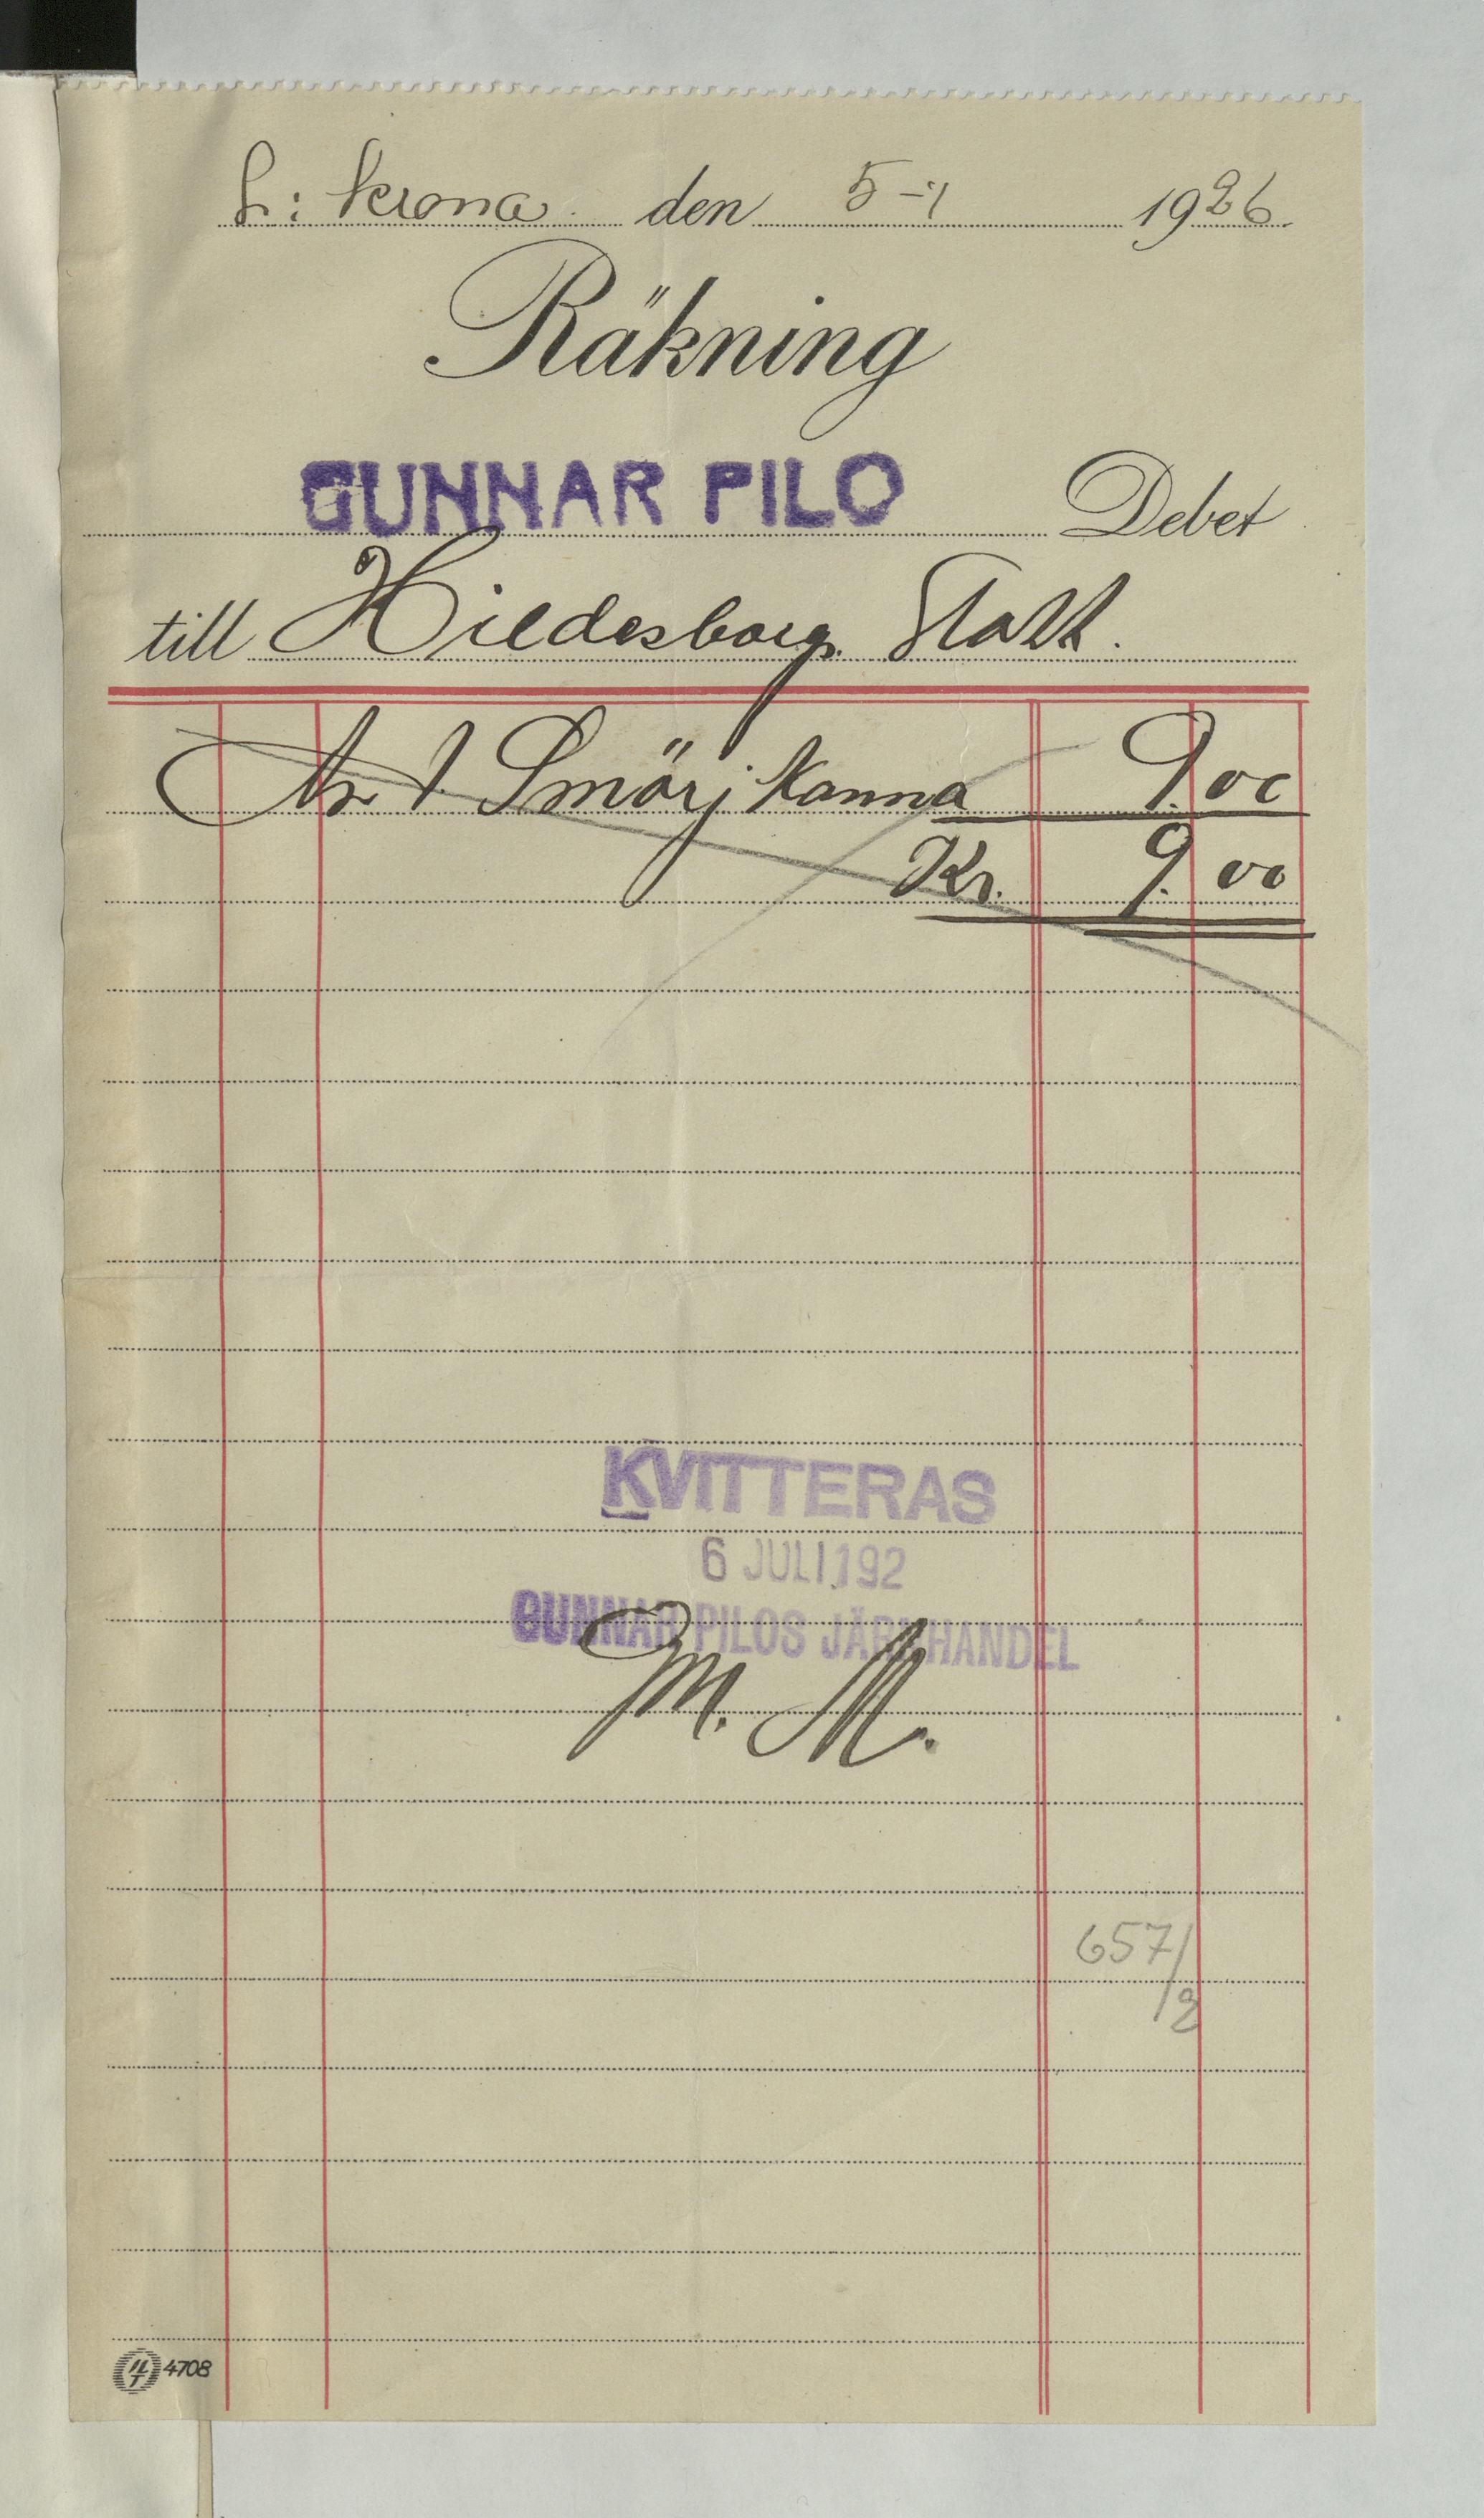 L: krona. den 5-7 1926.
Räkning
GUNNAR PILO Debet
till Hildesborg
An 1 Smörjkanna 9.00
Kr. 9.00
KVITTERAS
6 JULI.192
GUNNAR PILOS JÄRNHANDEL
M. M.
657/2
4708